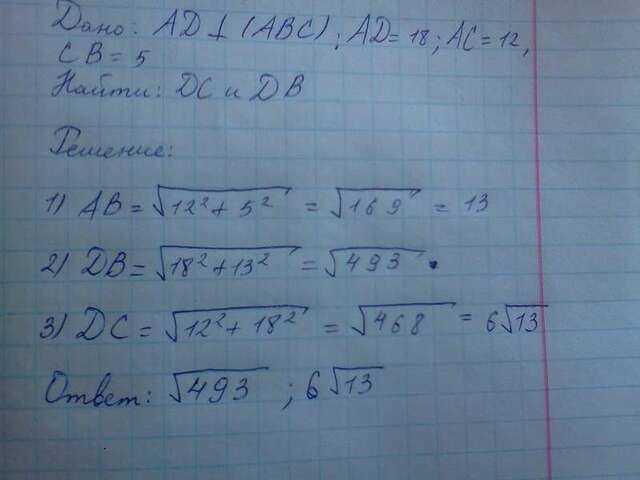 Дано: AD ⊥ (ABC); AD = 18; AC = 12,
CB = 5
Найти: DC и DB
Решение:
1) AB = √12² + 5² = √169 = 13
2) DB = √18² + 13² = √493.
3) DC = √12² + 18² = √468 = 6√13
Ответ: √493 ; 6√13